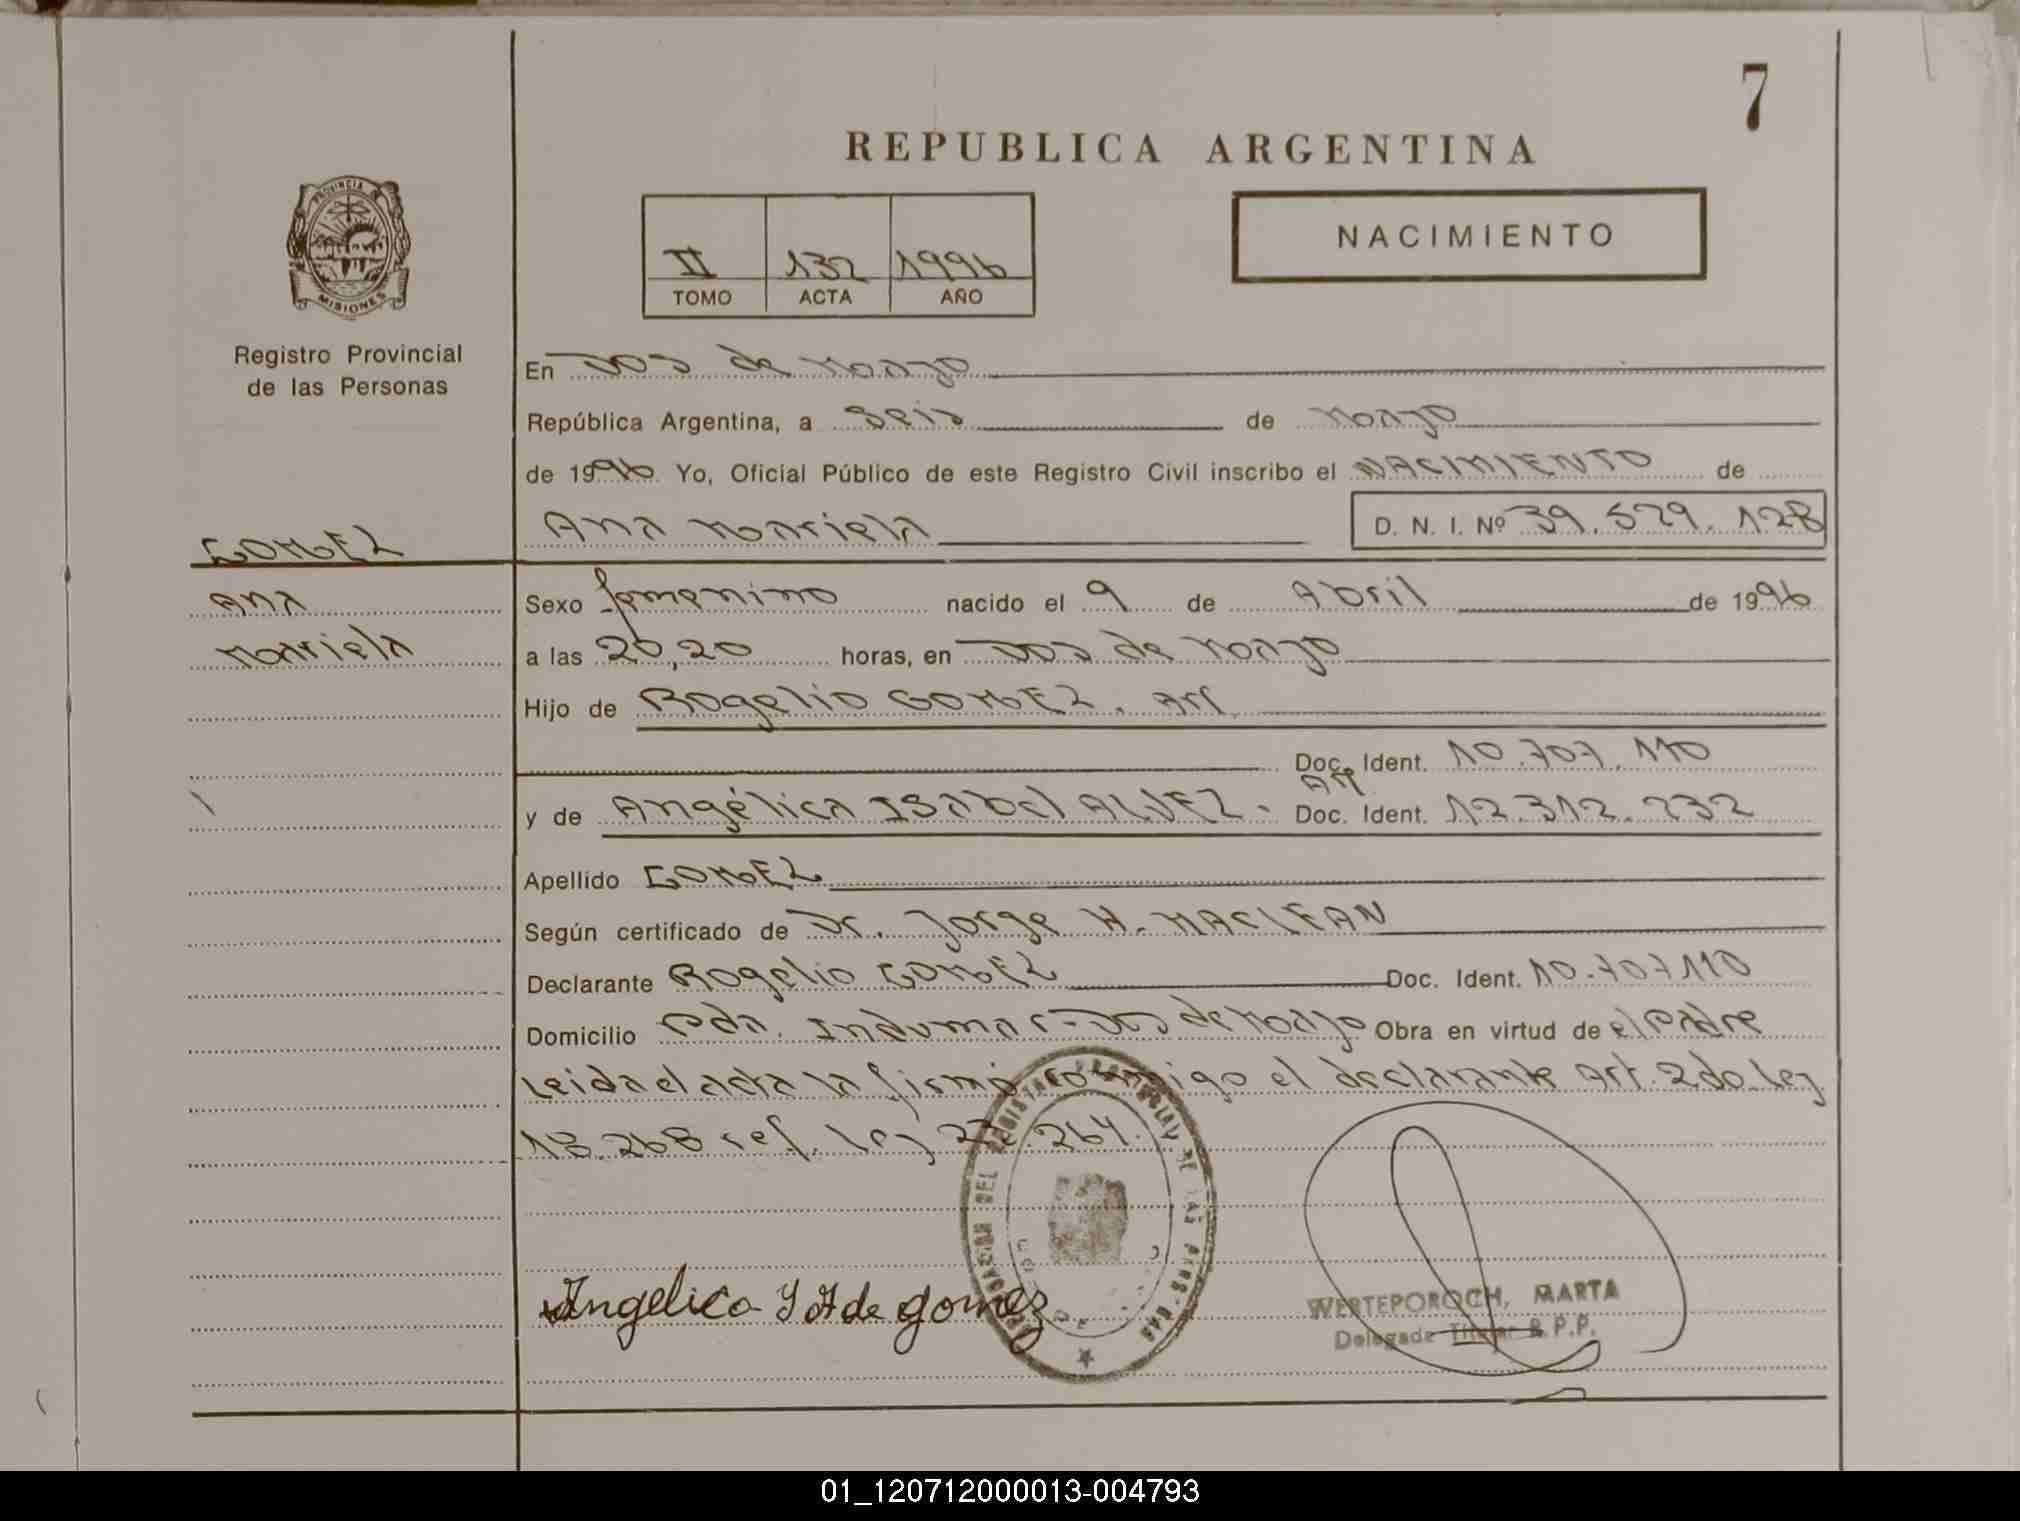 7
REPUBLICA ARGENTINA
PROVINCIA DE
MISIONES
Registro Provincial
de las Personas
II 132 1996
TOMO ACTA AÑO
NACIMIENTO
En Dos de Mayo
República Argentina, a Seis de Mayo
de 1996 Yo, Oficial Público de este Registro Civil inscribo el NACIMIENTO de
Ana Mariela D. N. I. Nº 39.529.128
GOMEZ
Ana
Mariela
Sexo femenino nacido el 9 de Abril de 1996
a las 20,20 horas, en Dos de Mayo
Hijo de Rogelio GOMEZ. Arg.
Doc. Ident. 10.707.110
Arg
y de Angélica Isabel ALVEZ - Doc. Ident. 12.312.232
Apellido GOMEZ
Según certificado de Dr. Jorge H. MACLEAN
Declarante Rogelio GOMEZ Doc. Ident. 10.707110
Domicilio Pda. Indumar-Dos de Mayo Obra en virtud de el Padre
Leida el acta la firma conmigo el declarante Art. 2do Ley
18.268 ref. Ley 23.264.
Angelica Y A de gomez
WERTEPOROCH, MARTA
Delegada Titular R.P.P.
01_120712000013-004793